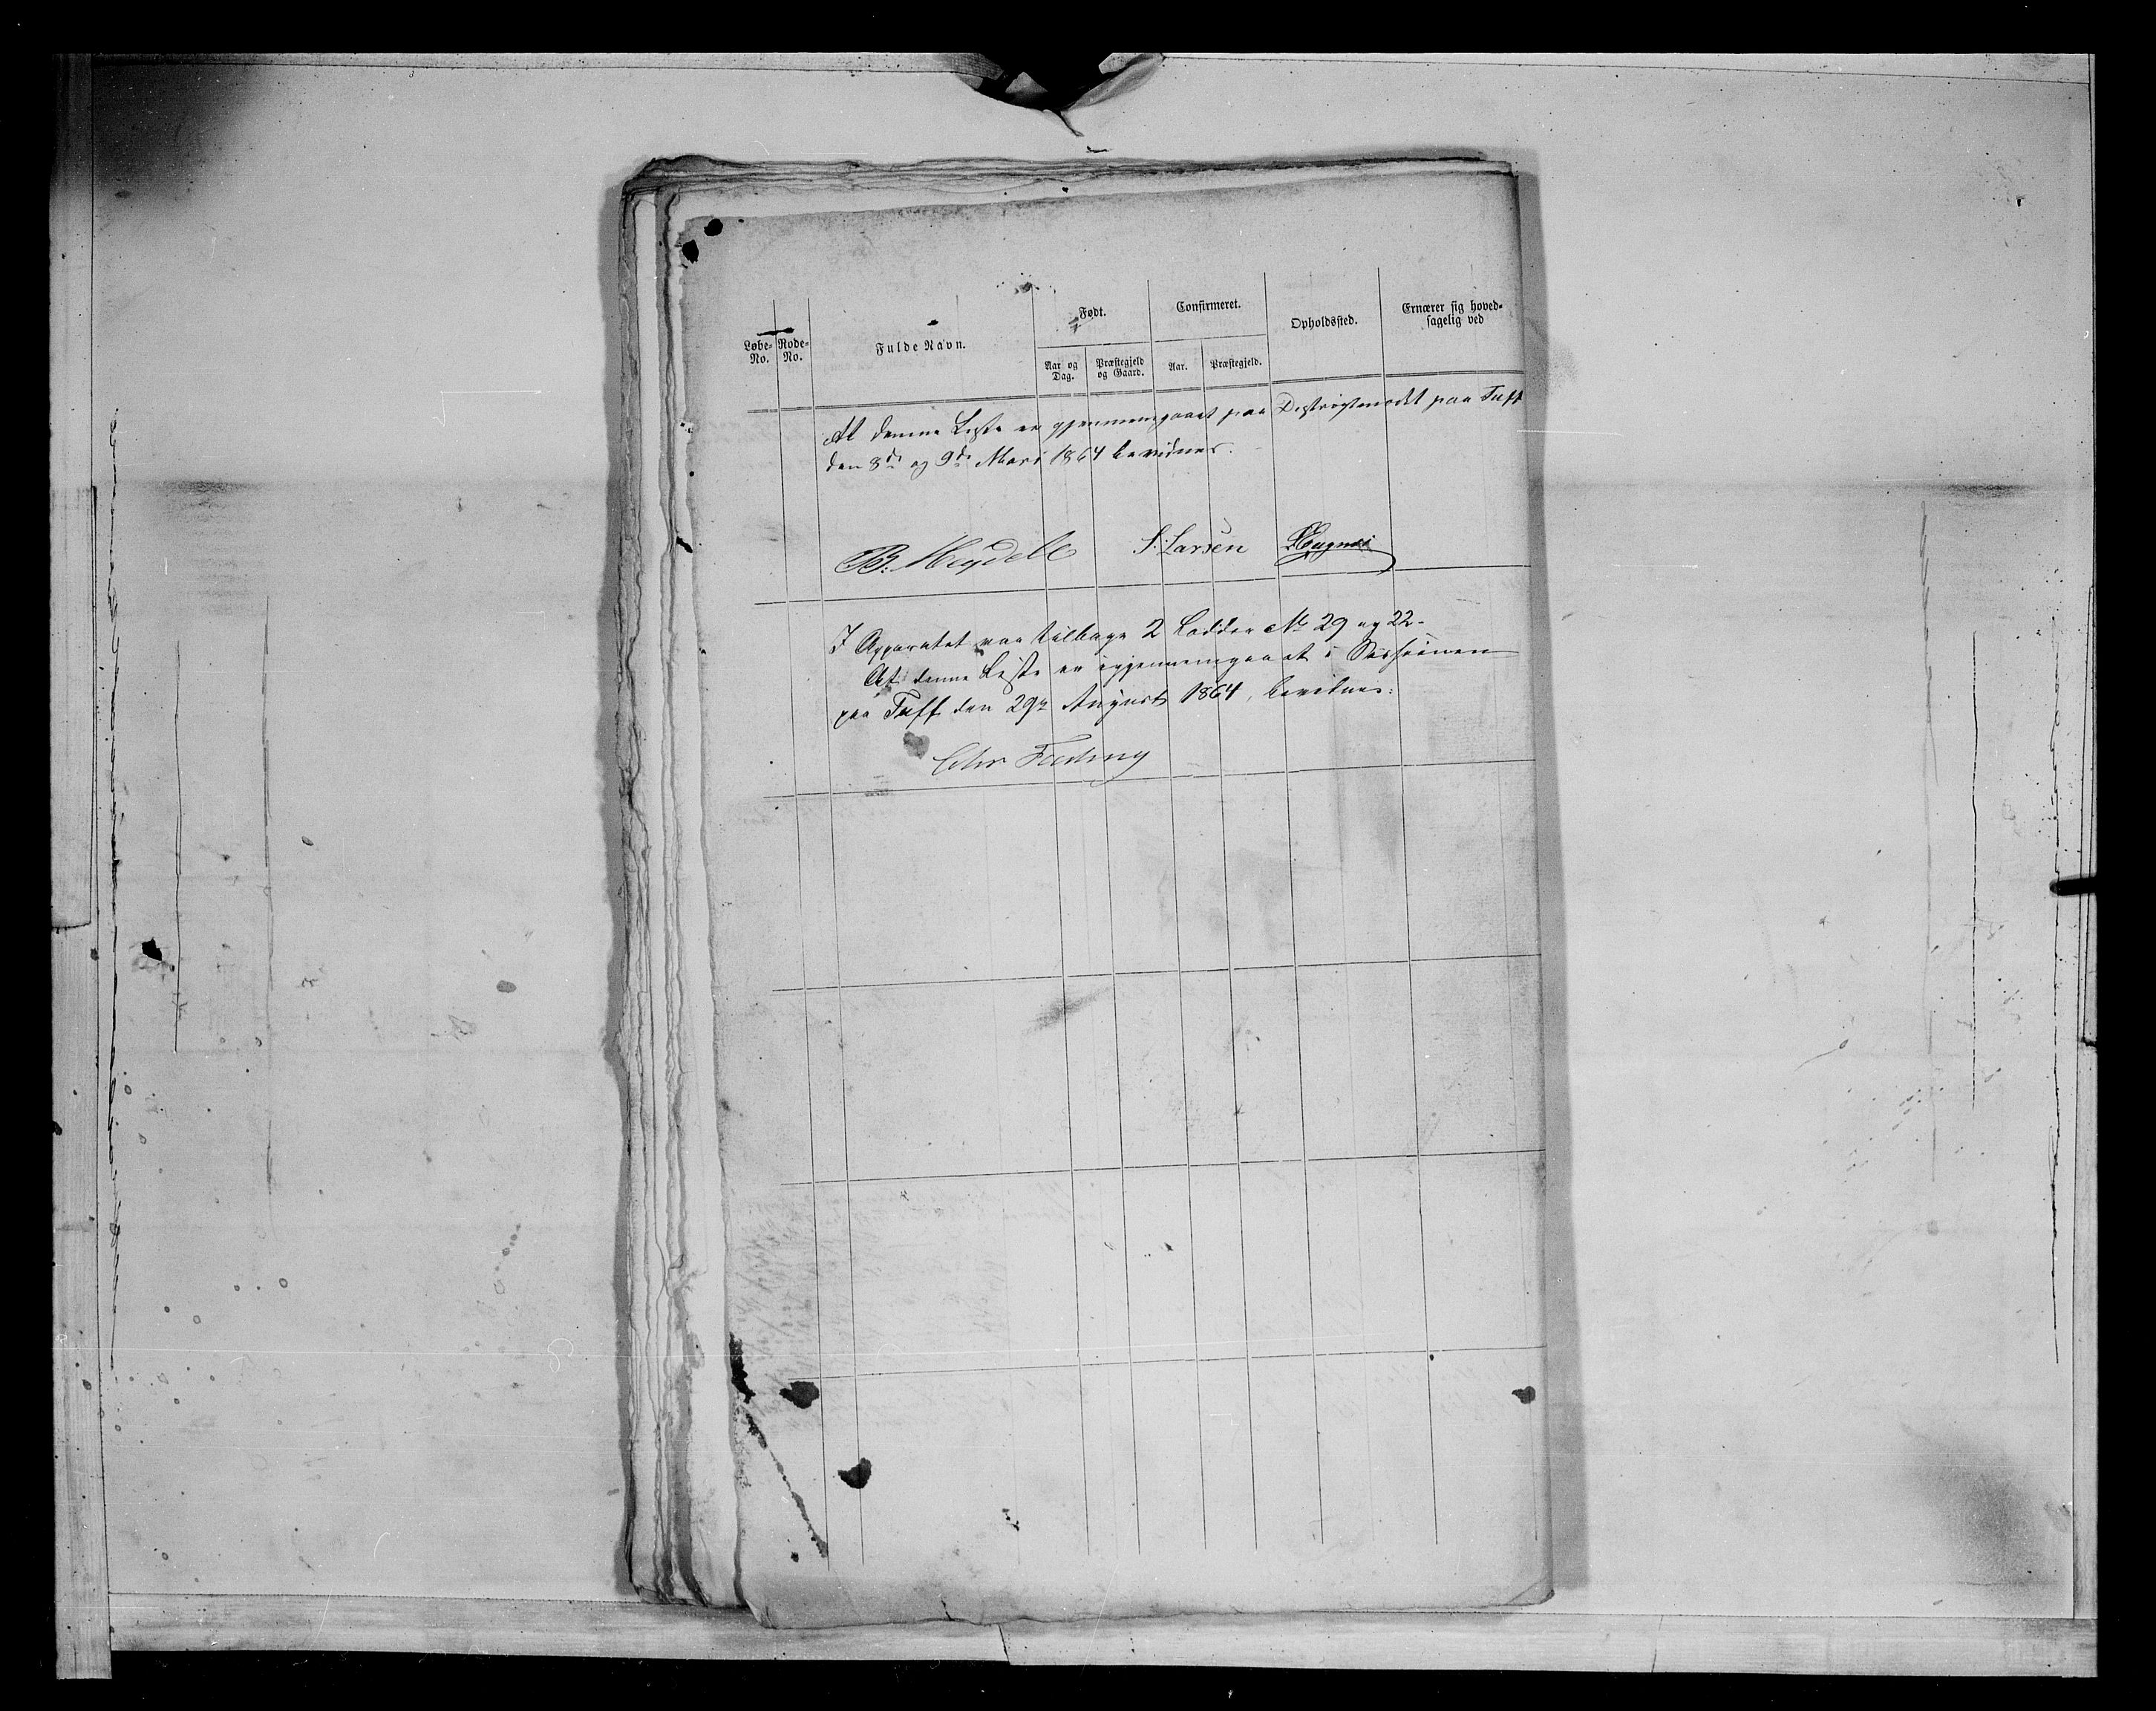 Løbe-No.
Rode-No.
Fulde Navn.
Født.
Aar og Dag.
Præstegjeld og Gaard.
Confirmeret.
Aar.
Præstegjeld.
Opholdssted.
Ernærer sig hoved-
sagelig ved
At denne Liste er gjennemgaaet paa Distriktsmødet paa Tuff
den 8de og 9de Mari 1864 bevidnes.
B: Meydell S: Larsen
I Apparatet var tilbage 2 Lodder No 29 og 22.
At denne Liste er igjennemgaaet i Sessionen
paa Tuff den 29de August 1864, bevidnes:
Chr